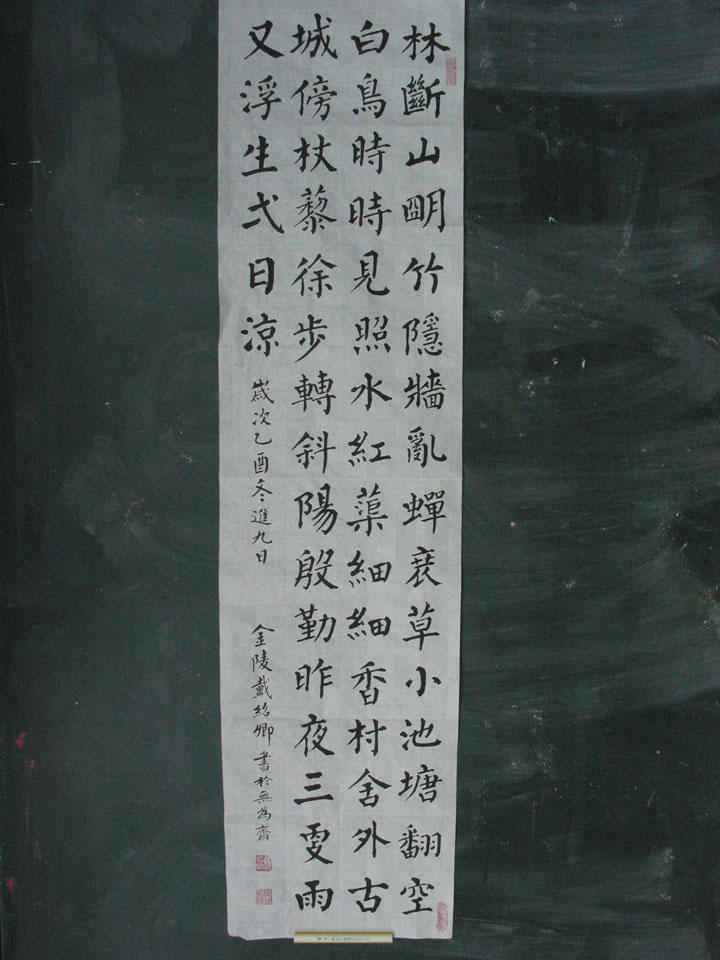 林斷山明竹隱牆亂蟬衰草小池塘翻空
白鳥時時見照水紅蕖細細香村舍外古
城傍杖藜徐步轉斜陽殷勤昨夜三更雨
又浮生弌日涼
歲次乙酉冬進九日
金陵戴紹卿書於無為齋